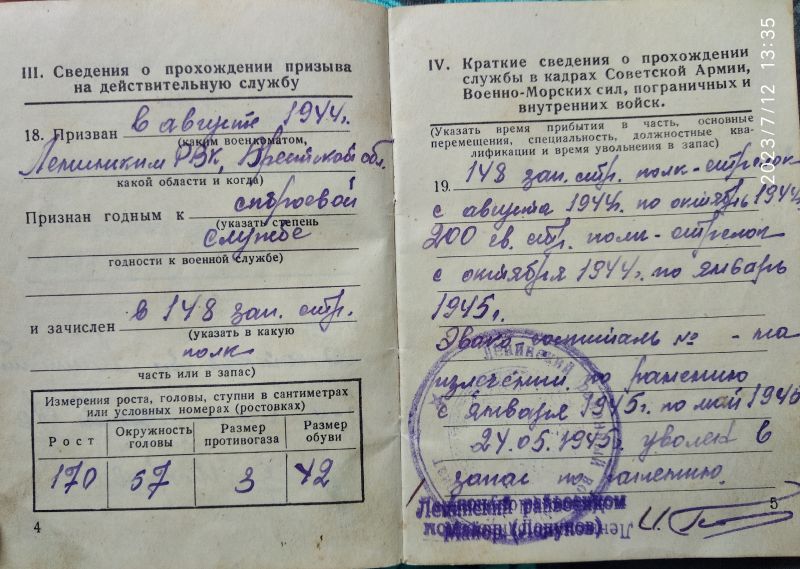 III. Сведения о прохождении призыва
на действительную службу
18. Призван в августе 1944г.
(каким военкоматом,
Ленинским РВК, Брестской обл.
какой области и когда)
Признан годным к строевой
(указать степень
службе
годности к военной службе)
и зачислен в 148 зап. стр.
(указать в какую
полк
часть или в запас)
Измерения роста, головы, ступни в сантиметрах
или условных номерах (ростовках)
Рост Окружность головы Размер противогаза Размер обуви
170 57 3 42
4
IV. Краткие сведения о прохождении
службы в кадрах Советской Армии,
Военно-Морских сил, пограничных и
внутренних войск.
(Указать время прибытия в часть, основные
перемещения, специальность, должностные ква-
лификации и время увольнения в запас)
19. 148 зап. стр. полк - стрелок
с августа 1944г. по октябрь 1944г.
200 св. стр. полк - стрелок
с октября 1944г. по январь
1945г.
Эвако госпиталь № - на
излечении по ранению
с января 1945г. по май 1945
24.05.1945г. уволен в
запас по ранению.
Ленинский райвоенком
майор
5
2023/7/12 13:35